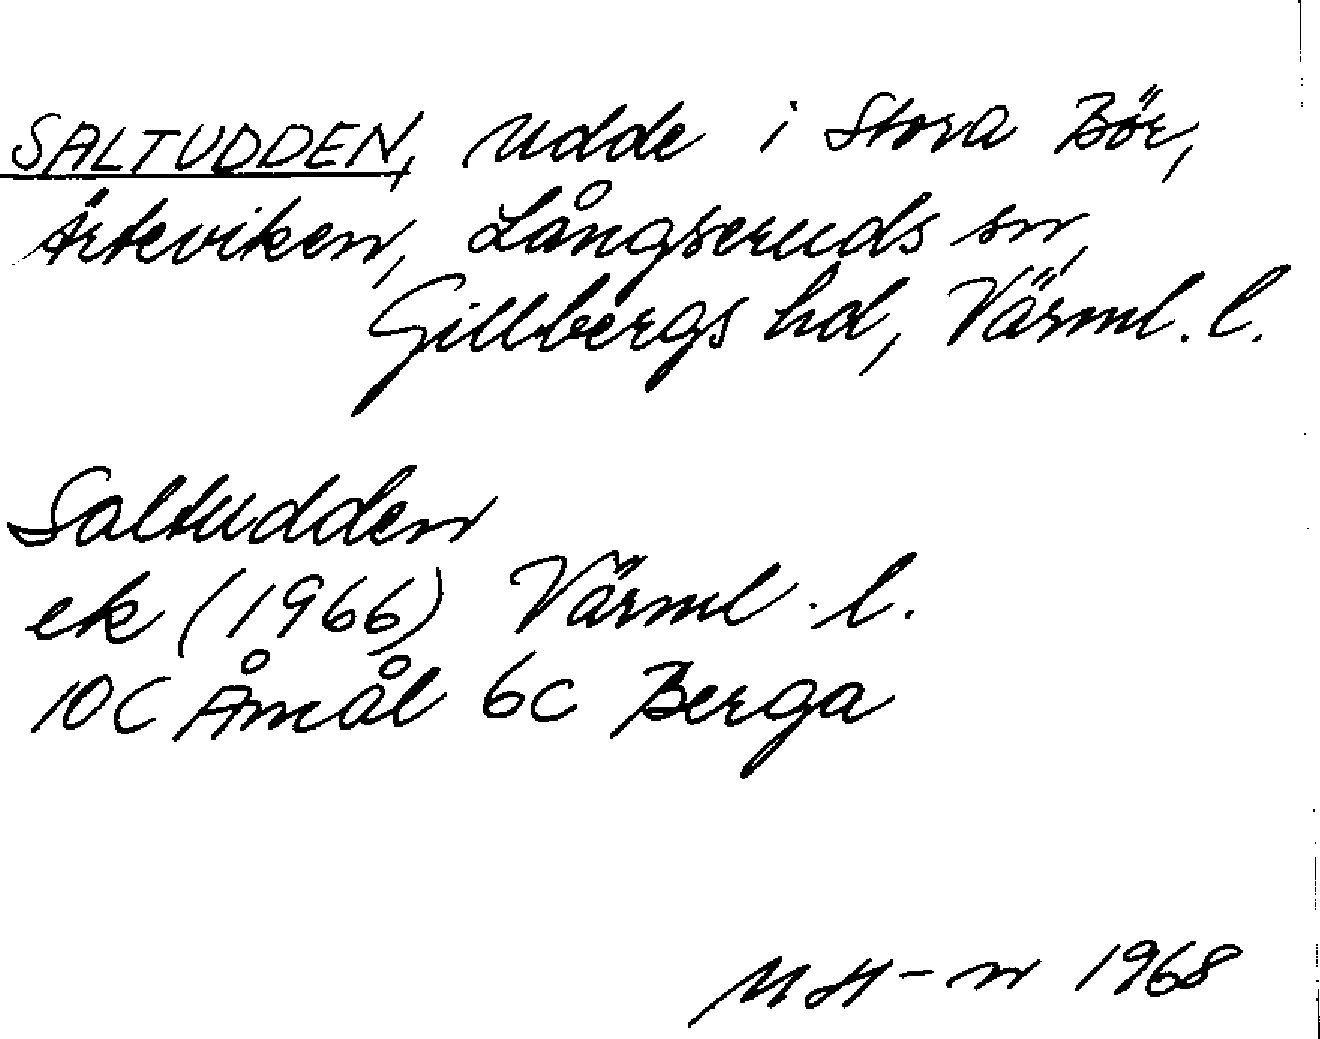 SALTUDDEN, udde i Stora Bör,
Ärteviken, Långseruds sn,
Gillbergs hd, Värml. l.
Saltudden
ek (1966) Värml. l.
10C Åmål 6c Berga
MH-n 1968